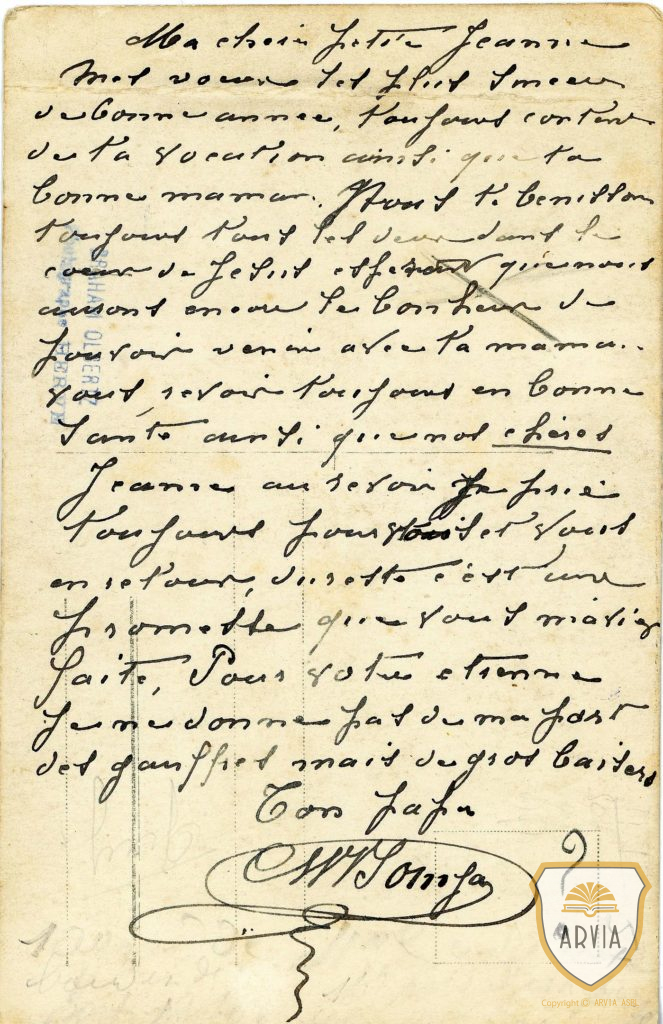 Ma cheri petite Jeanne
Mes voeux les plus sincer
de bonne année, toujours content
de ta vocation ainsi que ta
bonne maman. Nous te benisson
toujours tous les deux dans le
coeur de Jesus esperant que nous
aurons encore le bonheur de
pouvoir venir avec ta maman..
vous revoir toujours en bonne
santé ainsi que nos chères
Jeanne au revoir Je prie
toujours pour vous et vous
en retour, du reste c'est une
promesse que vous m'aviez
faite, Pour votre etrenne
Je ne donne pas de ma part
des gauffres mais de gros baisers
Ton papa
ARVIA
Copyright © ARVIA ASBL